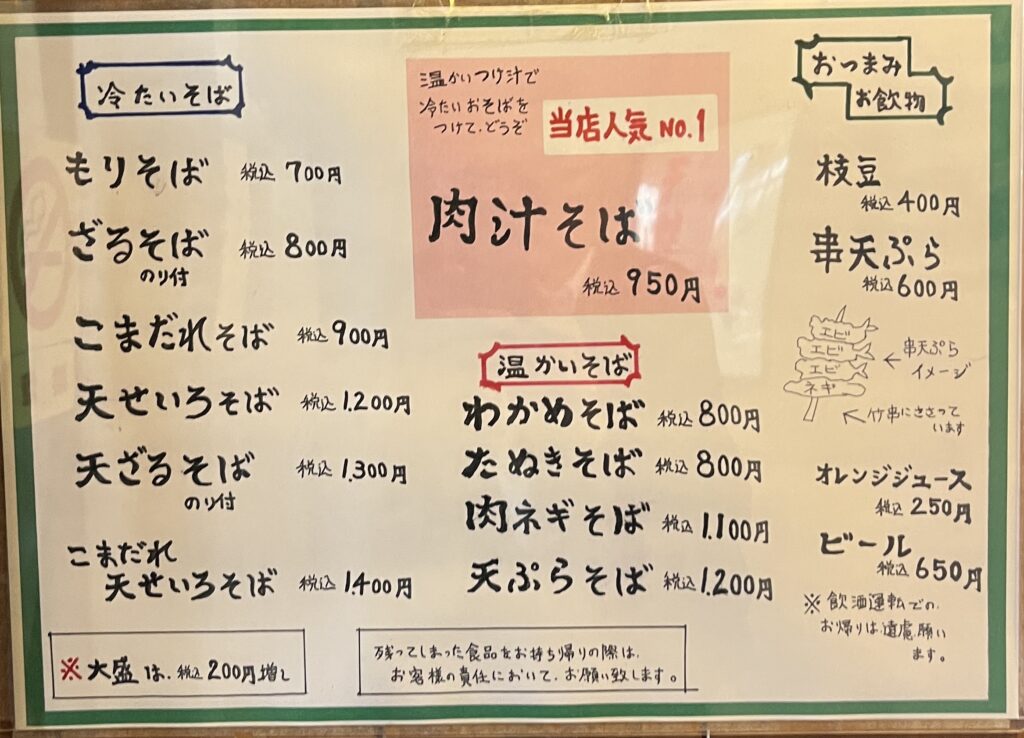 冷たいそば
もりそば 税込 700円
ざるそば 税込 800円
のり付
ごまだれそば 税込 900円
天せいろそば 税込 1.200円
天ざるそば 税込 1.300円
のり付
ごまだれ
天せいろそば 税込 1.400円
※大盛は、税込200円増し
温かいつけ汁で
冷たいおそばを
つけて、どうぞ
当店人気 NO.1
肉汁そば
税込 950円
温かいそば
わかめそば 税込 800円
たぬきそば 税込 800円
肉ネギそば 税込 1.100円
天ぷらそば 税込 1.200円
残ってしまった食品をお持ち帰りの際は、
お客様の責任において、お願い致します。
おつまみ
お飲物
枝豆
税込 400円
串天ぷら
税込 600円
エビ
エビ
エビ
ネギ
←串天ぷら
イメージ
←竹串にささって
います
オレンジジュース
税込 250円
ビール
税込 650円
※飲酒運転での、
お帰りは、遠慮願い
ます。